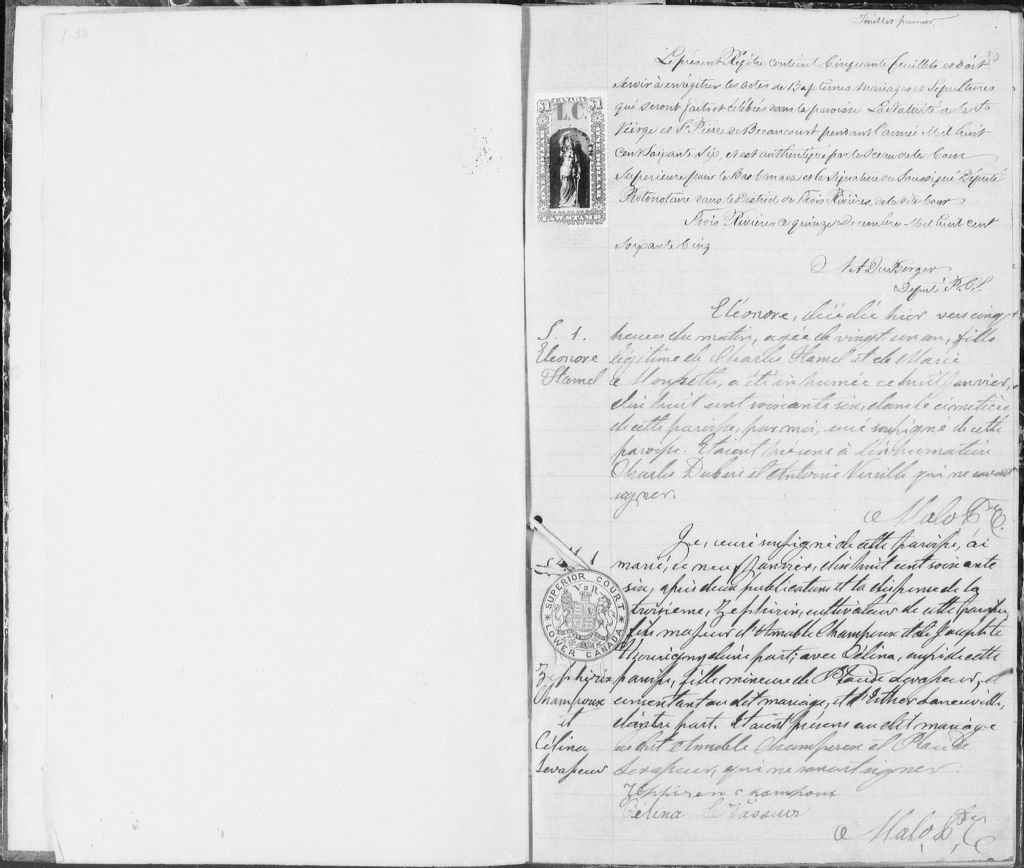 Feuillet premier.
Le présent Régître contient Cinquante feuillets et doit
servir à enrégitrer les actes de Baptêmes Mariages et Sépultures
qui seront faits et célébrés dans la paroisse La Nativité de la Ste
Vièrge et St. Pierre de Becancourt pendant l'année Mil huit
Cent Soixante Six, et est authentiqué par le Sceau de la Cour
Supérieure pour le Bas Canada et la Signature du Soussigné Député
Protonotaire dans le District de Trois Rivières, de la dite Cour
Trois Rivières ce quinze Decembre Mil huit cent
Soixante Cinq
Député P.C.S.
CANADA
$1 L.C. $1
S. 1.
Eléonore
Hamel
Eléonore, décédée hier vers cinq
heures du matin, agée de vingt un an, fille
légitime de Charles Hamel et de Marie
a été inhumée ce huit Janvier,
dix huit cent soixante six, dans le cimetière
de cette paroisse, par moi, curé soussigné de cette
paroisse. Etaient présens à l'inhumation
Charles Dubois et Antoine qui ne savent
signer.
Malo Ptre
M. 1
Zéphirin
Champoux
et
Célina
Levasseur
SUPERIOR COURT
LOWER CANADA
V R
Je, curé soussigné de cette paroisse, ai
marié, ce neuf Janvier, dix huit cent soixante
six, après deux publications et la dispense de la
troisième, Zéphirin, cultivateur de cette paroisse,
fils majeur d'Amable Champoux et de Josephte
d'une part; avec Célina, aussi de cette
paroisse, fille mineure de Levasseur,
consentant au dit mariage, et d'Esther Laneuville,
d'autre part. Etaient présens au dit mariage
le dit Amable Champoux et
Levasseur, qui ne savent signer.
Zéphiren Champoux
Célina Le Vasseur
Malo, Ptre